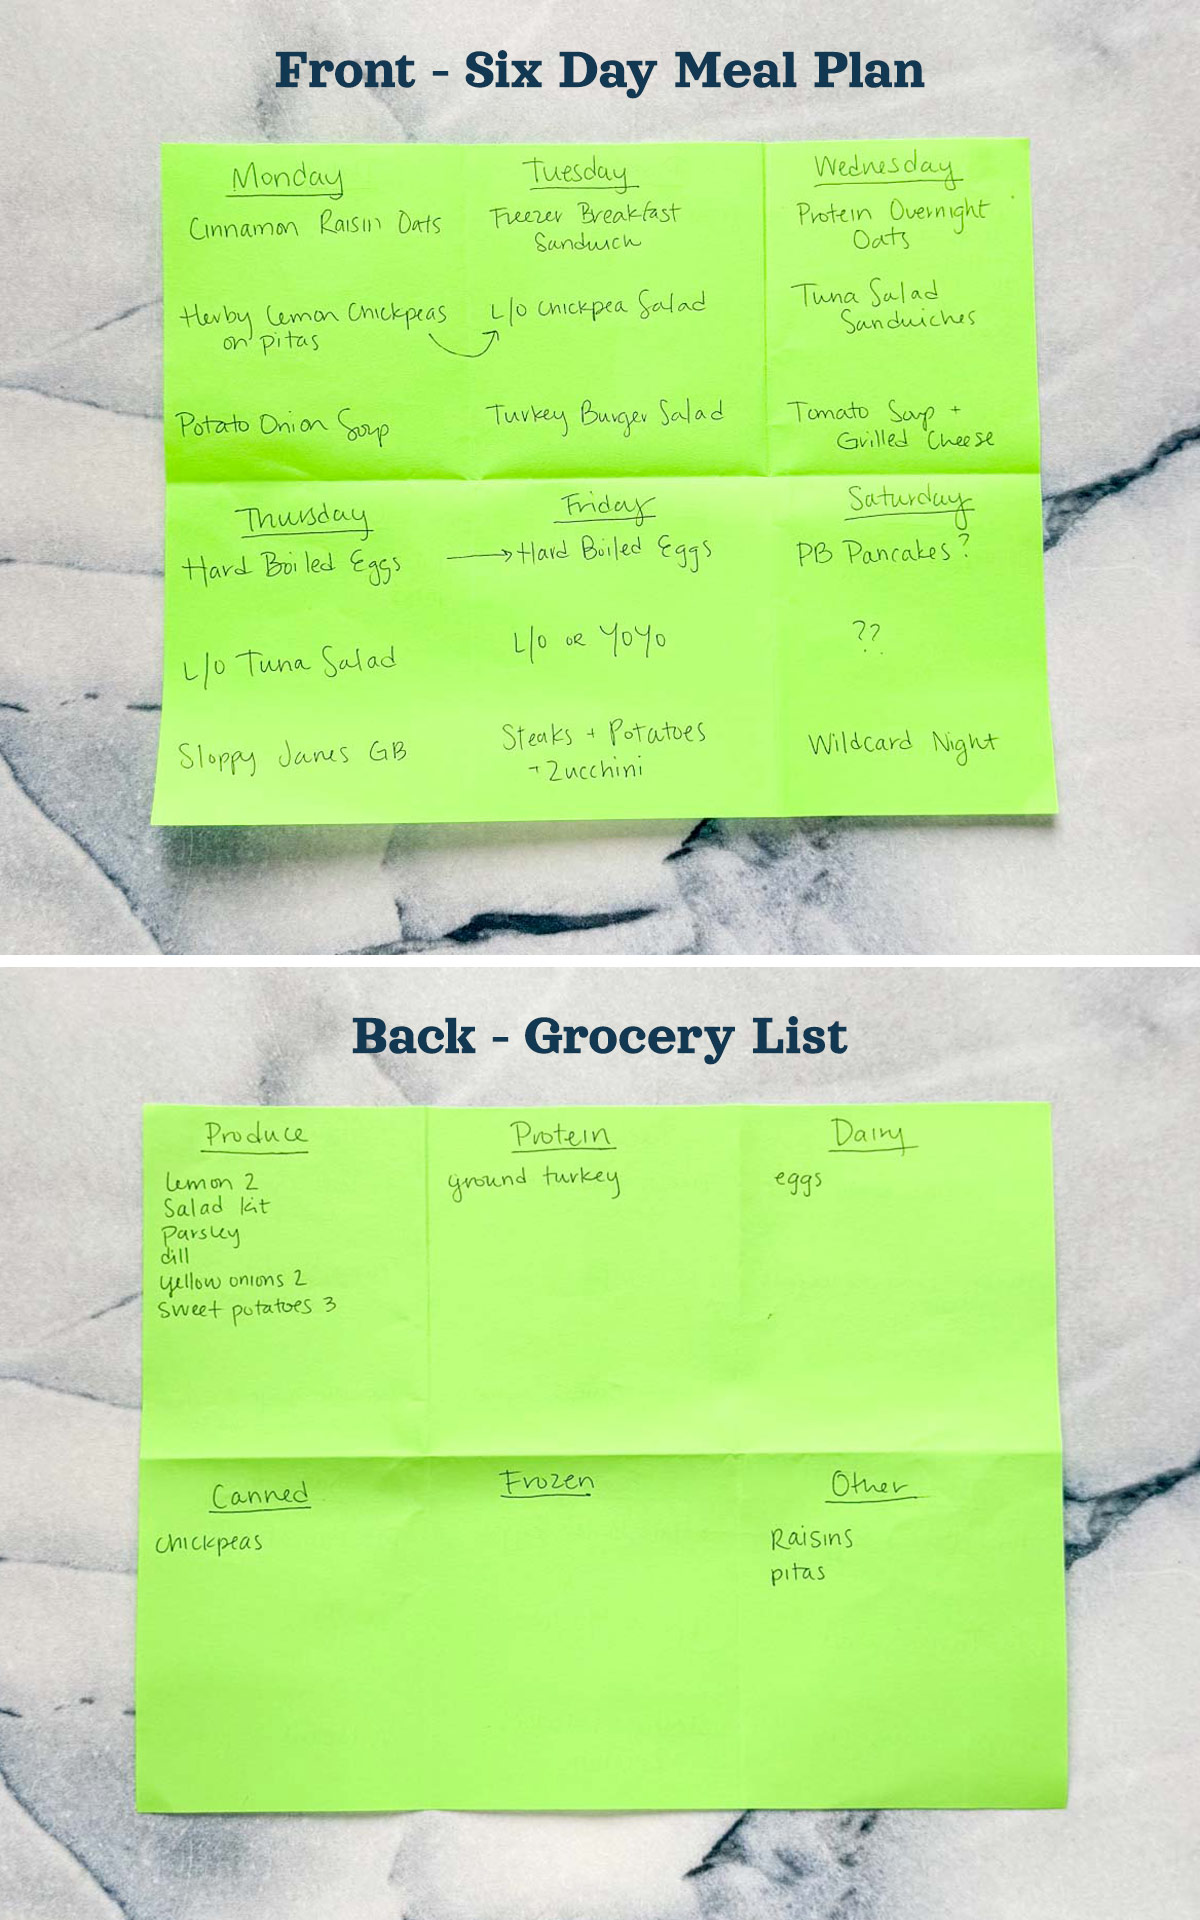 Front - Six Day Meal Plan
Monday
Cinnamon Raisin Oats
Herby Lemon Chickpeas
on pitas
Potato Onion Soup
Tuesday
Freezer Breakfast
Sandwich
L/O Chickpea Salad
Turkey Burger Salad
Wednesday
Protein Overnight
Oats
Tuna Salad
Sandwiches
Tomato Soup +
Grilled Cheese
Thursday
Hard Boiled Eggs
L/O Tuna Salad
Sloppy Janes GB
Friday
Hard Boiled Eggs
L/O or YOYO
Steaks + Potatoes
+ Zucchini
Saturday
PB Pancakes?
??
Wildcard Night
Back - Grocery List
Produce
Lemon 2
Salad kit
Parsley
dill
yellow onions 2
sweet potatoes 3
Protein
ground turkey
Dairy
eggs
Canned
chickpeas
Frozen
Other
Raisins
pitas